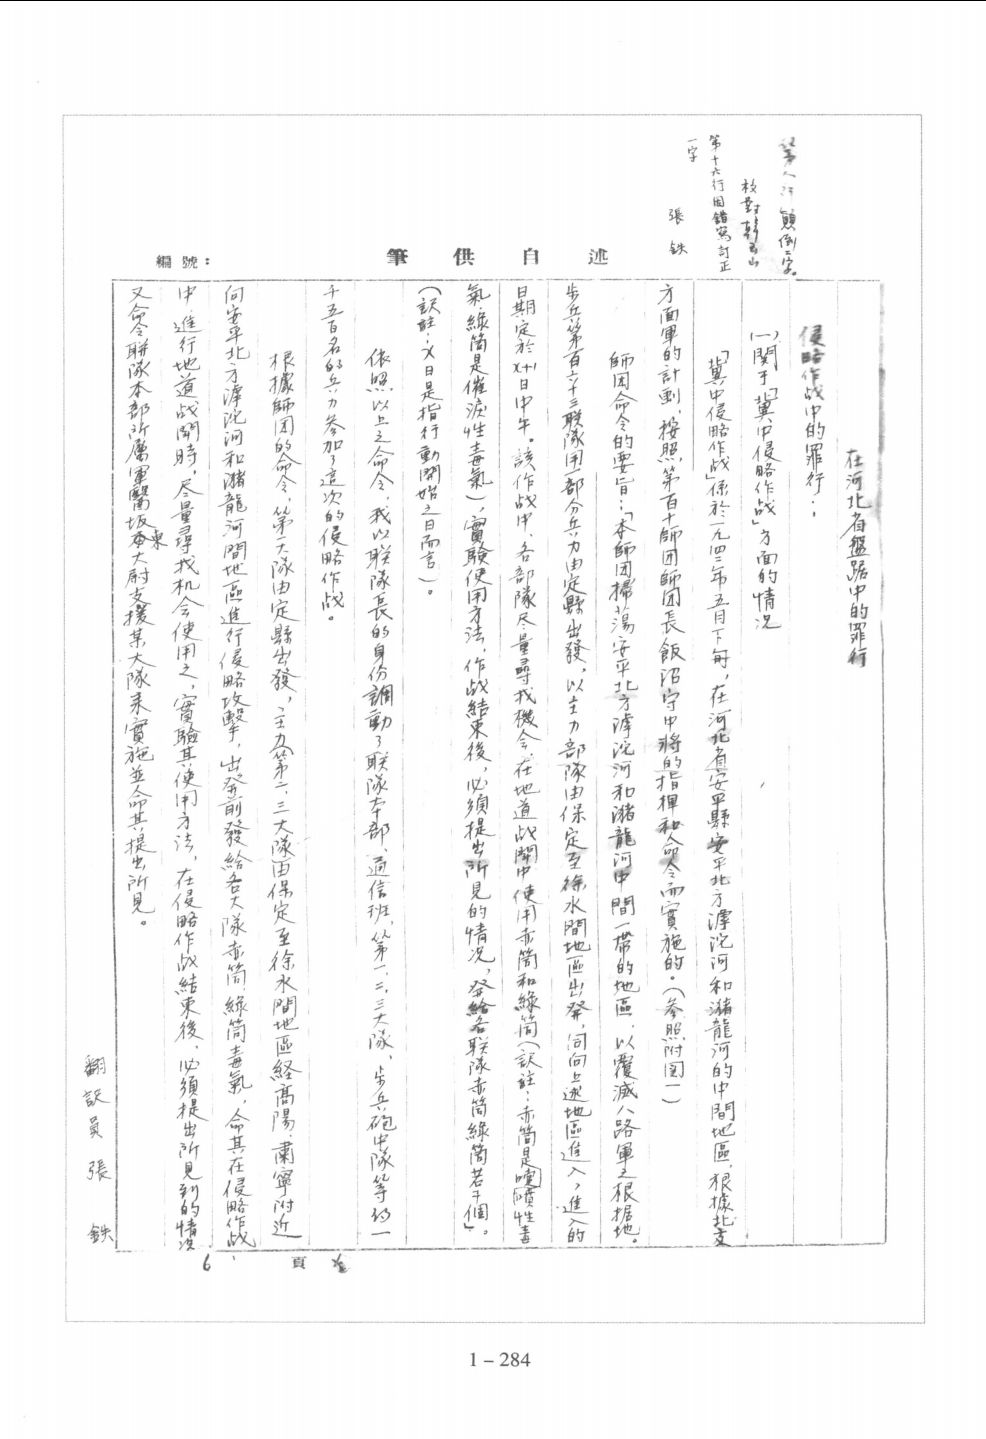 第八行顛倒二字。
校對韓玉山
第十六行因錯寫訂正
一字
張鉄
筆供自述
編號：
在河北省盤踞中的罪行
侵略作战中的罪行：
(一)関于「冀中侵略作战」方面的情况
「冀中侵略作战」係於一九四二年五月下旬，在河北省安平縣安平北方滹沱河和瀦龍河的中間地區，根據北支
方面軍的計劃，按照第百十師团師团長飯沼守中將的指揮和命令而實施的。(参照附图一)
師团命令的要旨：「本師团掃蕩安平北方滹沱河和瀦龍河中間一帶的地區，以覆滅八路軍之根据地。
步兵第百六十三联隊用一部分兵力由定縣出發，以主力部隊由保定至徐水間地區出発，向上述地區進入，進入的
日期定於X+1日中午。該作战中，各部隊尽量尋找機会，在地道战鬪中使用赤筒和綠筒(訳註：赤筒是噴嚏性毒
氣，綠筒是催淚性毒氣)，實驗使用方法，作战結束後，必須提出所見的情况，発給各联隊赤筒綠筒若干個」。
(訳註：X日是指行動開始之日而言)。
依照以上之命令，我以联隊長的身份調動了联隊本部、通信班、第一、二、三大隊、步兵砲中隊等約一
千五百名的兵力参加了這次的侵略作战。
根據師团的命令，第一大隊由定縣出發，主力(第二、三大隊)由保定至徐水間地區経高陽、肅寧附近
向安平北方滹沱河和瀦龍河間地區進行侵略攻擊，出発前發給各大隊赤筒、綠筒毒氣，命其在侵略作战
中，進行地道战鬪時，尽量尋找机会使用之，實驗其使用方法，在侵略作战結束後，必須提出所見到的情况
又命令联隊本部所屬軍醫坂東大尉支援某大隊来實施並命其提出所見。
翻訳員 張 鉄
頁 6
1－284